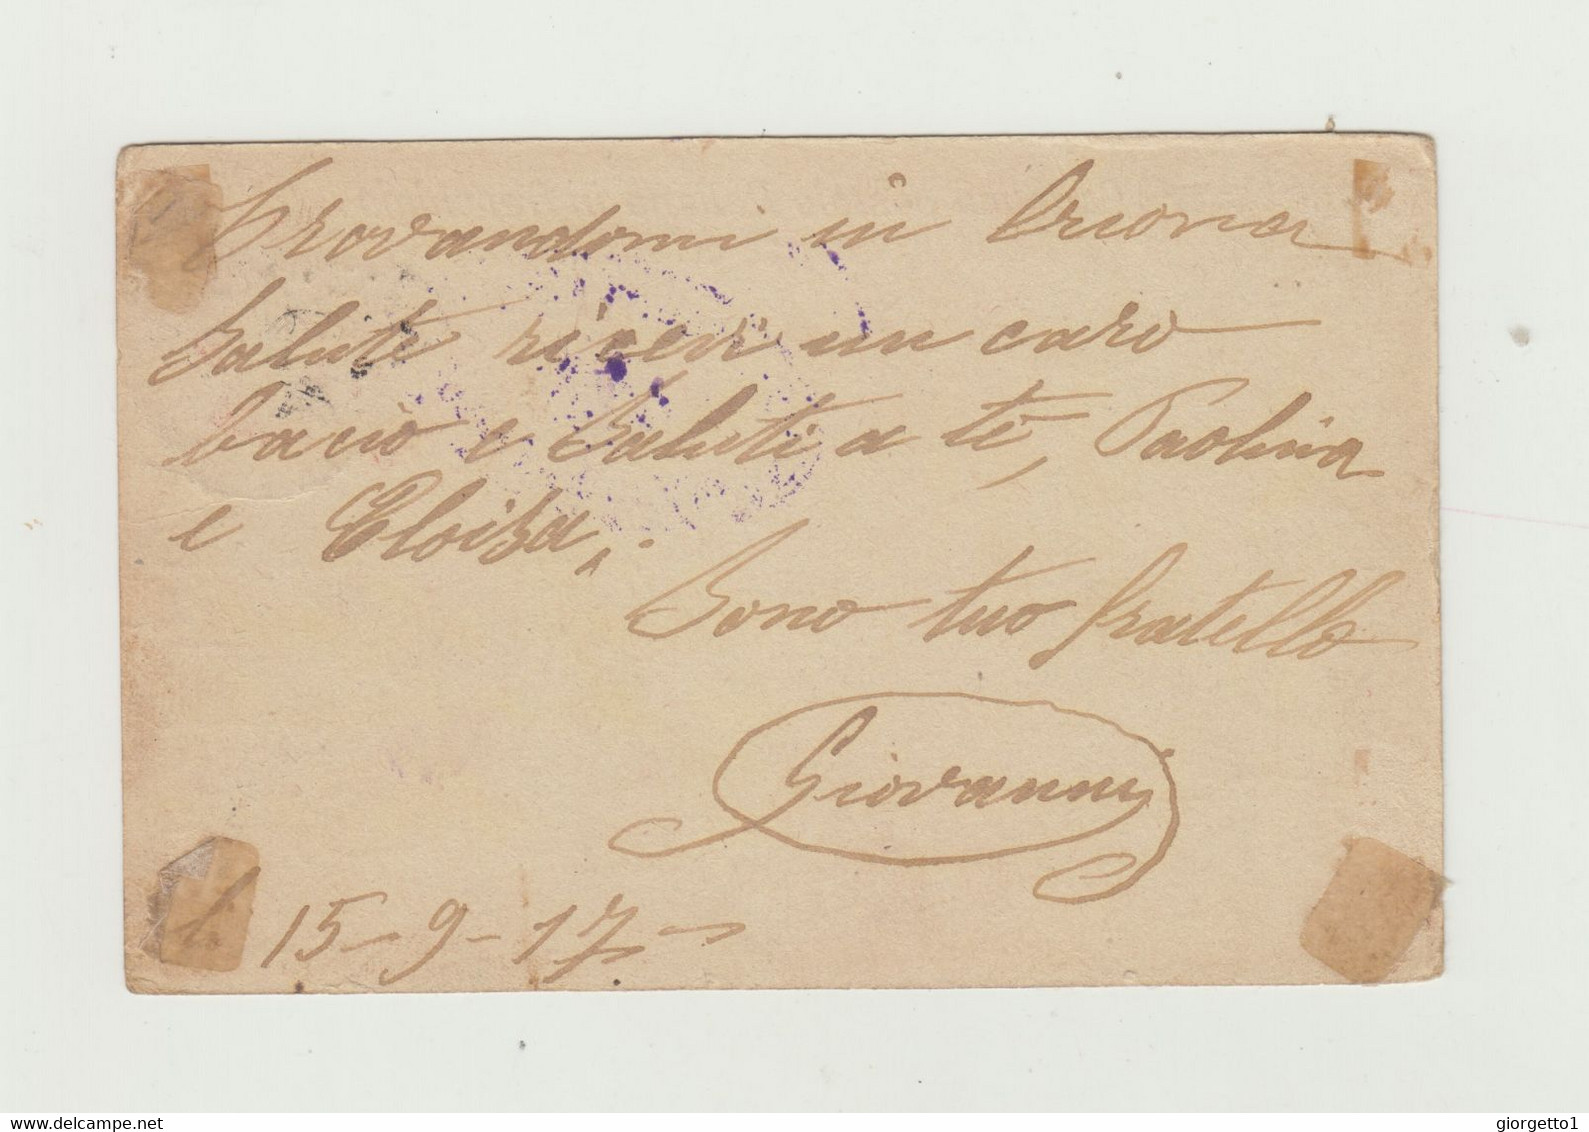 Trovandomi in buona
Salute ricevi un caro
bacio e Saluti a te, Paolina
e Eloisa.
Sono tuo fratello
Giovanni
li 15-9-17-
giorgetto1